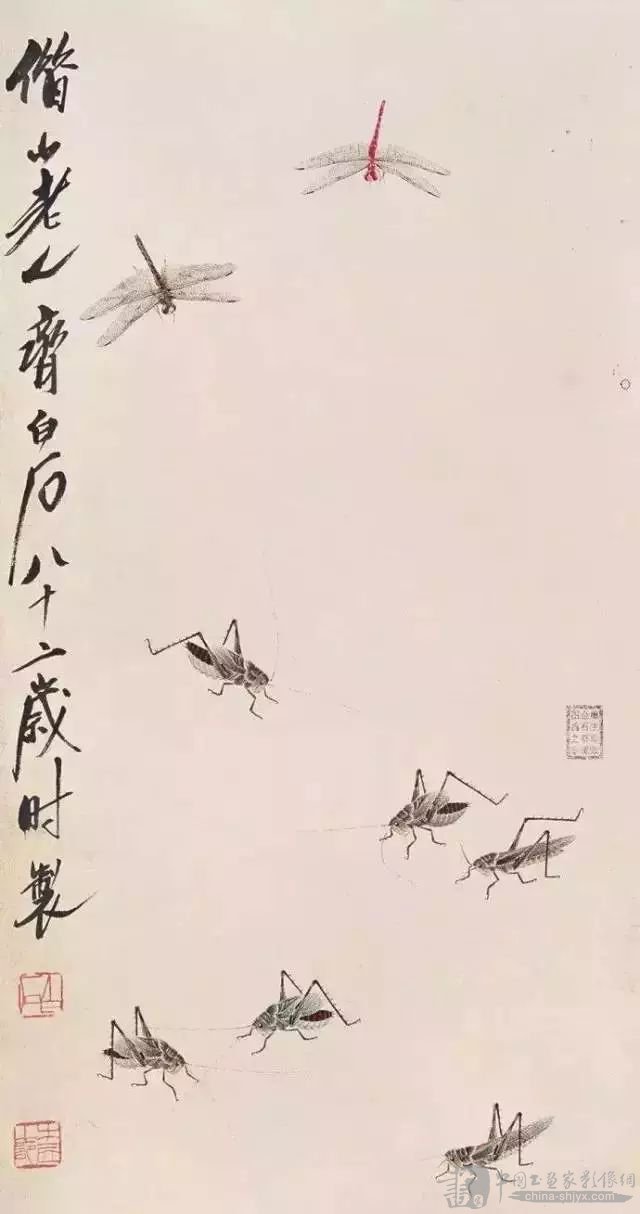 借山老人齊白石八十二歲时製
中国书画家影像網
china-shjyx.com